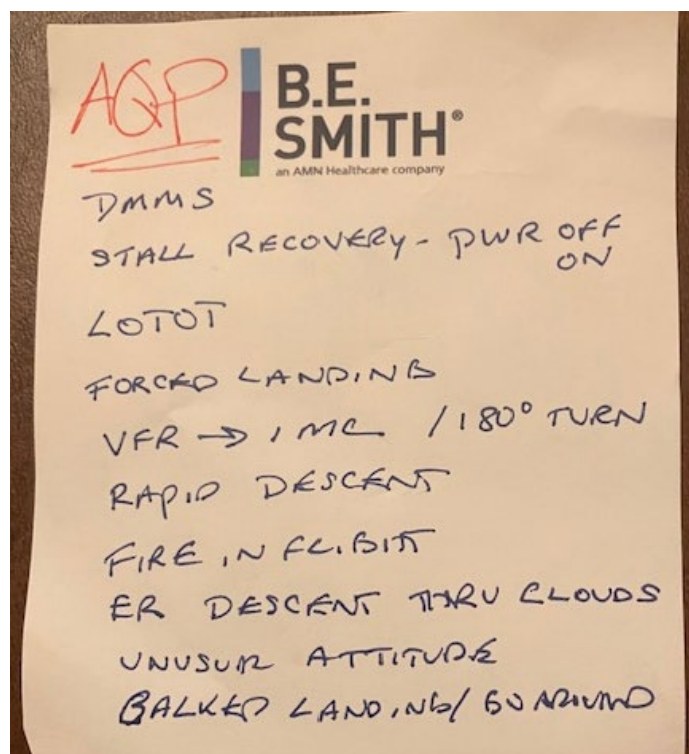 AQP
B.E.
SMITH®
an AMN Healthcare company
DMMS
STALL RECOVERY - PWR OFF
ON
LOTOT
FORCED LANDING
VFR → IMC / 180° TURN
RAPID DESCENT
FIRE IN FLIGHT
ER DESCENT THRU CLOUDS
UNUSUAL ATTITUDE
BALKED LANDING/ GO AROUND